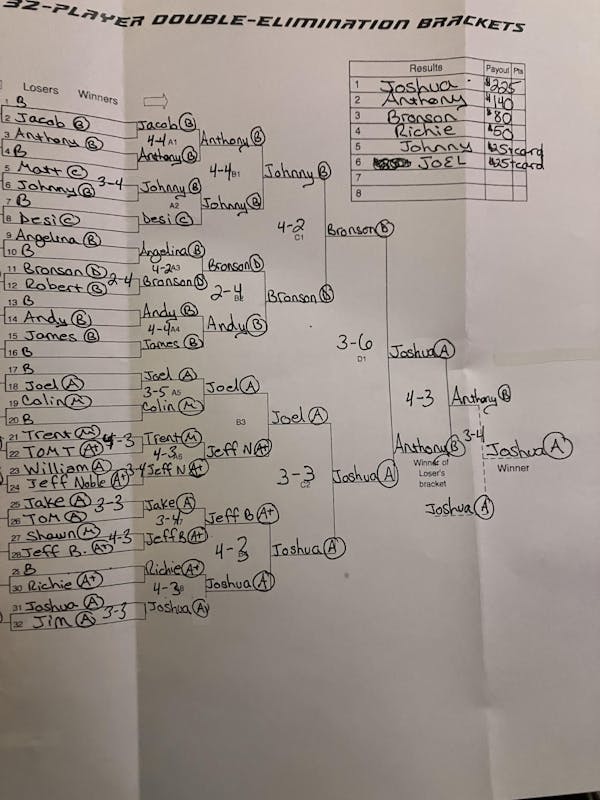 32-PLAYER DOUBLE-ELIMINATION BRACKETS
Results Payout Pts
1 Joshua $225
2 Anthony $140
3 Bronson $80
4 Richie $50
5 Johnny $25+card
6 JOEL $25+card
7
8
Losers Winners
1 B
2 Jacob B
3 Anthony B
4 B
5 Matt C
6 Johnny B 3-4
7 B
8 Desi C
9 Angelina B
10 B
11 Bronson D
12 Robert B 2-4
13 B
14 Andy B
15 James B
16 B
17 B
18 Joel A
19 Colin M
20 B
21 Trent M 4-3
22 TOM T A+
23 William A 3-4
24 Jeff Noble A+
25 Jake A 3-3
26 TOM A
27 Shawn M 4-3
28 Jeff B. A+
29 B
30 Richie A+
31 Joshua A
32 Jim A 3-3
Jacob B
4-4 A1
Anthony B
Johnny B
A2
Desi C
Angelina B
4-2 A3
Bronson D
Andy B
4-4 A4
James B
Joel A
3-5 A5
Colin M
Trent M
4-3 A6
Jeff N A+
Jake A
3-4
Jeff B A+
Richie A+
4-3
Joshua A
Anthony B
4-4 B1
Johnny B
Bronson D
2-4 B2
Andy B
Joel A
B3
Jeff N A+
Jeff B A+
4-3
Joshua A
Johnny B
4-2
C1
Bronson D
Joel A
3-3
C2
Joshua A
Bronson D
3-6
D1
Joshua A
Joshua A
4-3
Anthony B
Winner of
Loser's
bracket
Anthony B
3-4
Joshua A
Joshua A
Winner